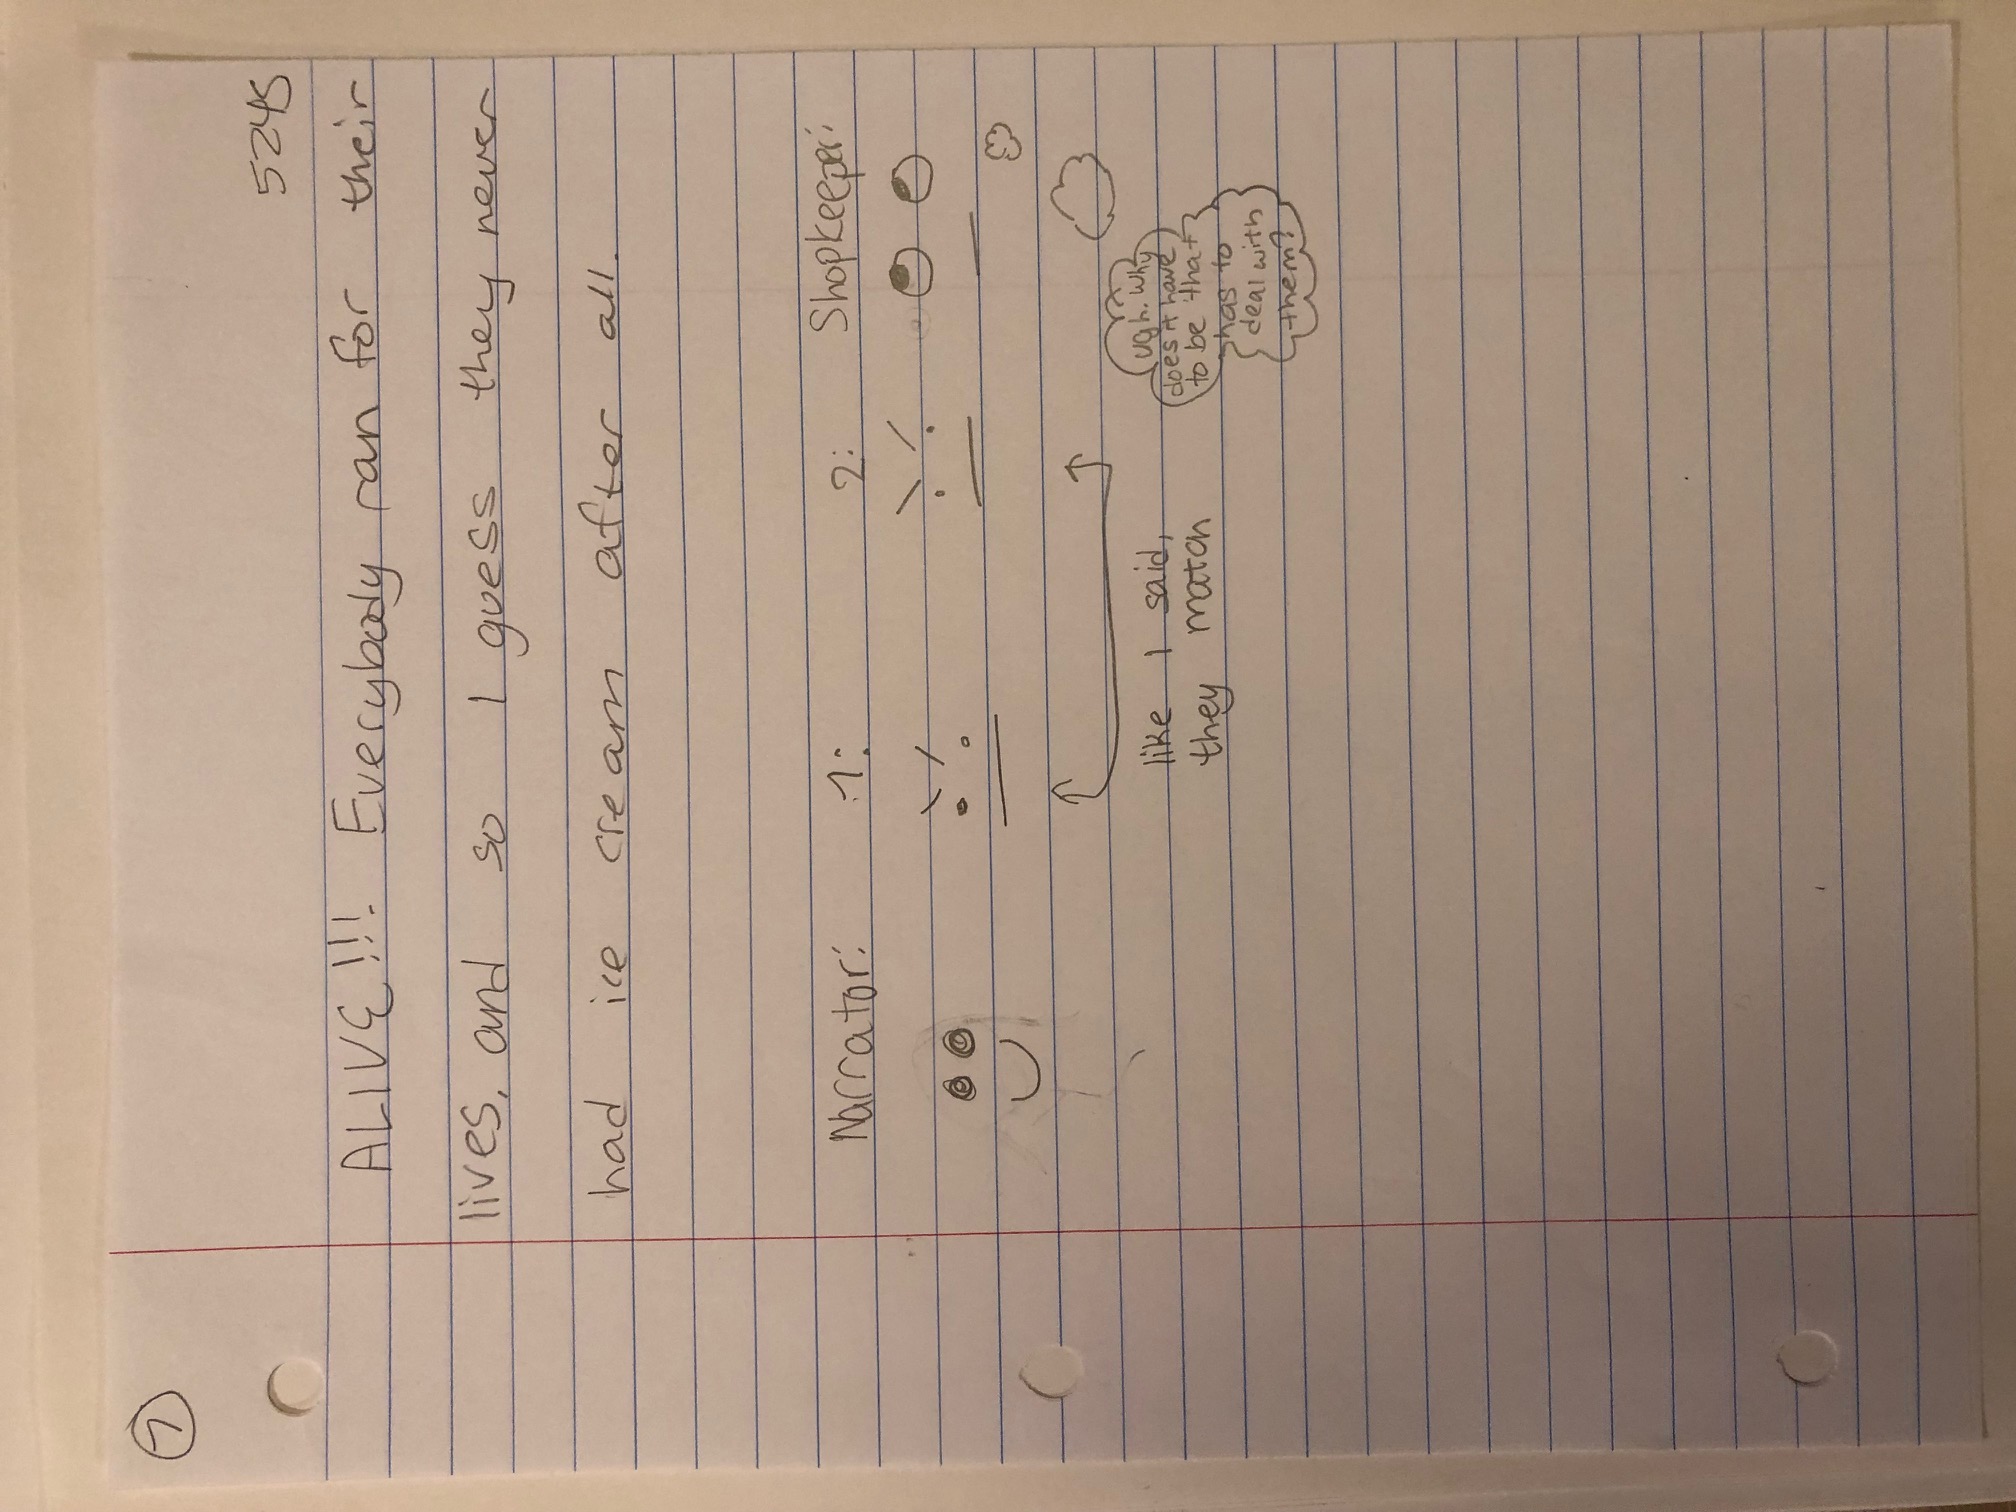 7
5245
ALIVE!!! Everybody ran for their
lives, and so I guess they never
had ice cream after all.
Narrator: 1: 2: Shopkeeper:
like I said,
they match
ugh. why
does it have
to be that
has to
deal with
them?